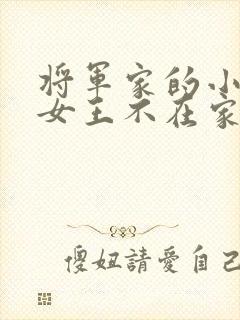 将軍家的小
女王不在家
傻妞請愛自己